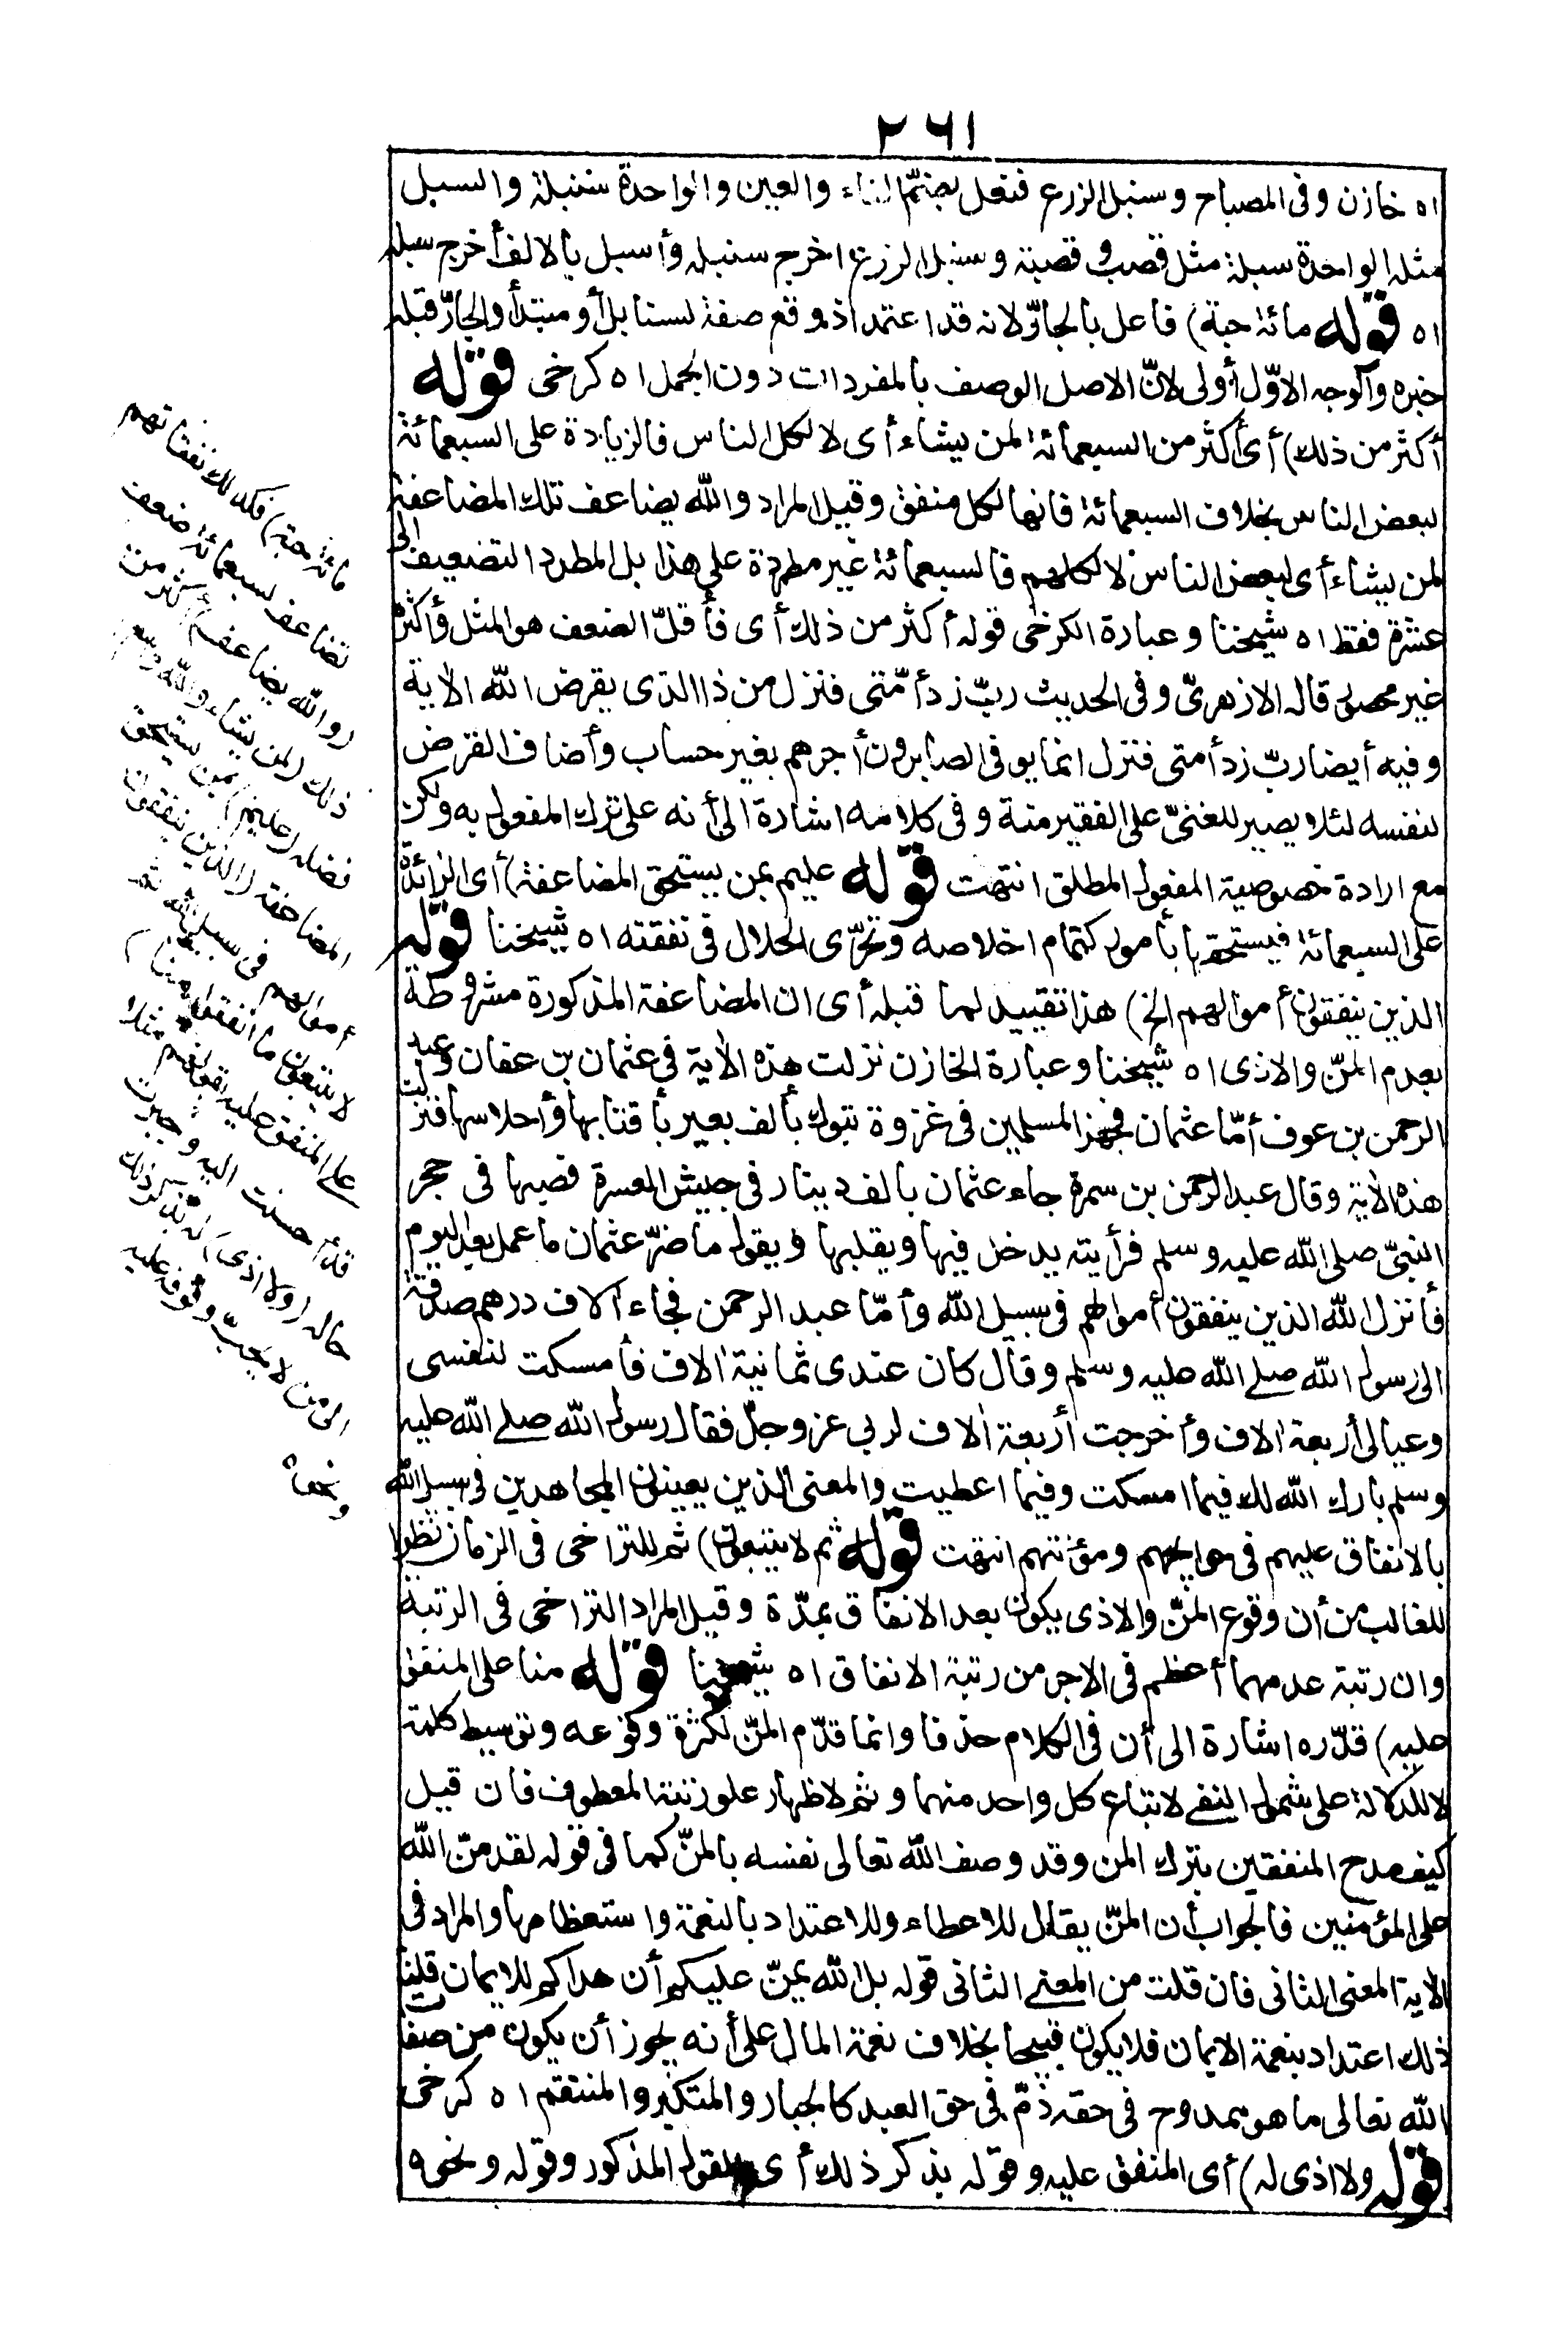 ٢٦١
اه خازن وفى المصباح وسنبل الزرع فنعل بضمّ الفاء والعين والواحدة سنبلة والسبل
مثله الواحدة سبلة مثل قصب وقصبة وسنبل الزرع اخرج سنبله وأسبل بالالف أخرج سبله
اه قوله مائة حبة) فاعل بالجارّ لانه قد اعتمد اذ وقع صفة لسنابل أو مبتدأ والجارّ قبله
خبره والوجه الاوّل أولى لانّ الاصل الوصف بالمفردات دون الجمل اه كرخى قوله
أكثر من ذلك) أى أكثر من السبعمائة لمن يشاء أى لا لكل الناس فالزيادة على السبعمائة
لبعض الناس بخلاف السبعمائة فانها لكل منفق وقيل المراد والله يضاعف تلك المضاعفة
لمن يشاء أى لبعض الناس لا لكلهم فالسبعمائة غير مطردة على هذا بل المطرد التضعيف الى
عشرة فقط اه شيخنا وعبارة الكرخى قوله أكثر من ذلك أى فأقلّ الضعف هو المثل وأكثره
غير محصور قاله الازهرىّ وفى الحديث ربّ زد أمّتى فنزل من ذا الذى يقرض الله الاٰية
وفيه أيضا ربّ زد أمتى فنزل انما يوفى الصابرون أجرهم بغير حساب وأضاف القرض
لنفسه لئلا يصير للغنىّ على الفقير منة وفى كلامه اشارة الى أنه على ترك المفعول به ولكن
مع ارادة خصوصية المفعول المطلق انتهت قوله عليم بمن يستحق المضاعفة) أى الزائدة
على السبعمائة فيستحقها بأمور كتمام اخلاصه وتحرّى الحلال فى نفقته اه شيخنا قوله
الذين ينفقون أموالهم الخ) هذا تقييد لما قبله أى ان المضاعفة المذكورة مشروطة
بعدم المنّ والاذى اه شيخنا وعبارة الخازن نزلت هذه الاٰية فى عثمان بن عفان وعبد
الرحمن بن عوف أمّا عثمان فجهز المسلمين فى غزوة تبوك بألف بعير بأقتابها وأحلاسها فنزلت
هذه الاٰية وقال عبد الرحمن بن سمرة جاء عثمان بالف دينار فى جيش العسرة فصبها فى حجر
النبىّ صلى الله عليه وسلم فرأيته يدخل فيها ويقلبها ويقول ما ضرّ عثمان ما عمل بعد اليوم
فأنزل الله الذين ينفقون أموالهم فى سبيل الله وأمّا عبد الرحمن فجاء آلاف درهم صدقة
الى رسول الله صلے الله عليه وسلم وقال كان عندى ثمانية اٰلاف فأمسكت لنفسى
وعيالى أربعة اٰلاف وأخرجت أربعة اٰلاف لربى عز وجلّ فقال رسول الله صلے الله عليه
وسلم بارك الله لك فيما امسكت وفيما اعطيت والمعنى الذين يعينون المجاهدين فى سبيل الله
بالانفاق عليهم فى حوايجهم ومؤنتهم انتهت قوله ثم لا يتبعون) ثم للتراخى فى الزمان نظرا
للغالب من أن وقوع المنّ والاذى يكون بعد الانفاق بمدّة وقيل المراد التراخى فى الرتبة
وان رتبة عدمهما أعظم فى الاجر من رتبة الانفاق اه شيخنا قوله منا على المنفق
عليه) قدّره اشارة الى أن فى الكلام حذفا وانما قدّم المنّ لكثرة وقوعه وتوسيط كلمة
لا للدلالة على شمول النفے لاتباع كل واحد منهما وثم لاظهار علو رتبة المعطوف فان قيل
كيف مدح المنفقين بترك المن وقد وصف الله تعالى نفسه بالمنّ كما فى قوله لقد منّ الله
على المؤمنين فالجواب أن المنّ يقال للاعطاء وللاعتداد بالنعمة واستعظامها والمراد فى
الاٰية المعنى الثانى فان قلت من المعنے الثانى قوله بل الله يمنّ عليكم أن هداكم للايمان قلنا
ذلك اعتداد بنعمة الايمان فلا يكون قبيحا بخلاف نعمة المال على أنه يجوز أن يكون من صفات
الله تعالى ما هو ممدوح فى حقه ذمّ فى حق العبد كالجبار والمتكبر والمنتقم اه كرخى
قوله ولا اذى له) أى المنفق عليه وقوله بذكر ذلك أى القول المذكور وقوله ونحوه
مائة حبة) فكذلك نفقاتهم
تضاعف لسبعمائة ضعف
(والله يضاعف) أكثر من
ذلك (لمن يشاء والله واسع)
فضله (عليم) بمن يستحق
المضاعفة (الذين ينفقون
أموالهم فى سبيل الله ثم
لا يتبعون ما أنفقوا منا)
على المنفق عليه بقولهم مثلا
قد أحسنت اليه وجبرت
حاله (ولا اذى) له بذكر ذلك
الى من لا يحبّ وقوفه عليه
ونحوه